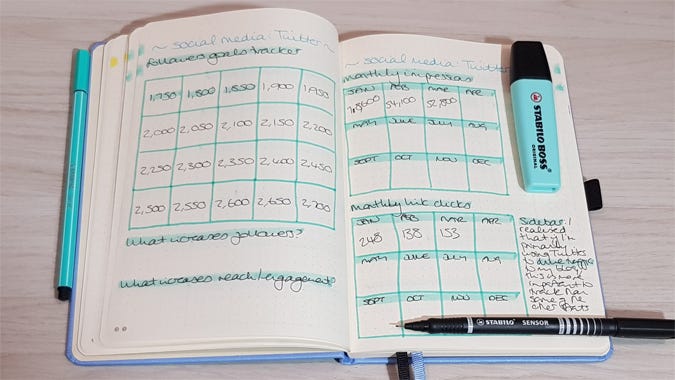 ~ social media: Twitter ~
followers goals tracker
1,750 1,800 1,850 1,900 1,950
2,000 2,050 2,100 2,150 2,200
2,250 2,300 2,350 2,400 2,450
2,500 2,550 2,600 2,650 2,700
What increases followers?
What increases reach/engagement?
~ social media: Twitter
monthly impressions
JAN FEB MAR APR
54,100 52,800
MAY JUNE JULY AUG
SEPT OCT NOV DEC
monthly link clicks
JAN FEB MAR APR
248 138 153
MAY JUNE JULY AUG
SEPT OCT NOV DEC
Sidebar: I
realised
that if I'm
primarily
using Twitter
to drive traffic
to my blog,
this is more
important to
track than
some of the
other stats
STABILO BOSS
ORIGINAL
STABILO SENSOR